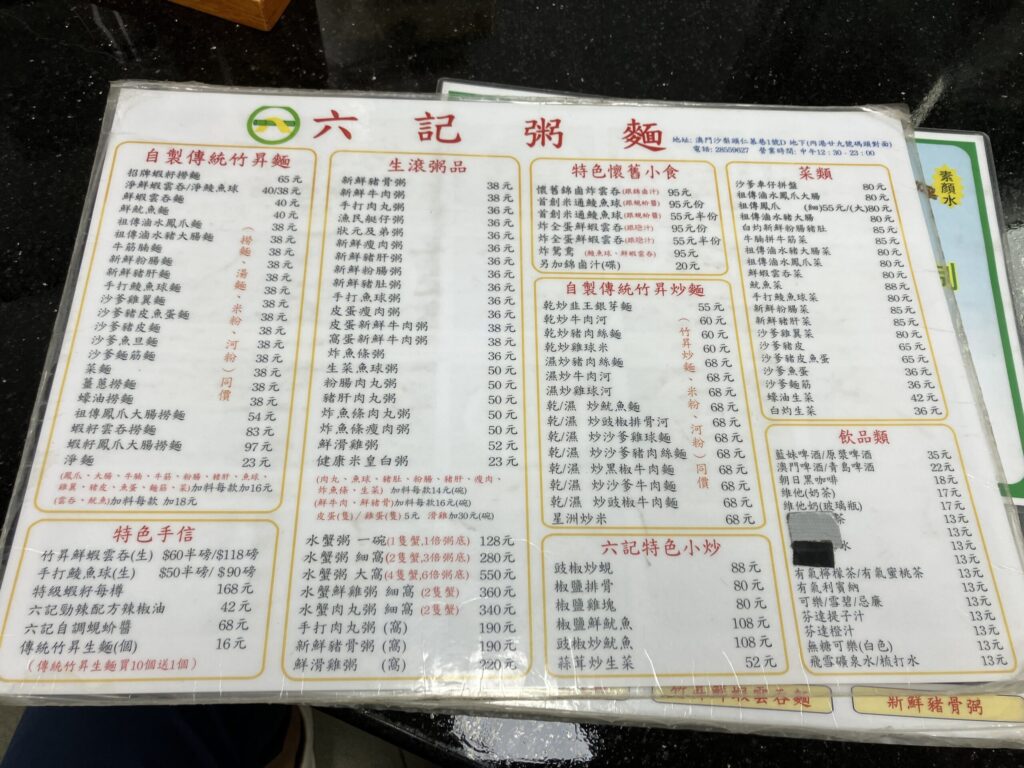 六記粥麵
地址: 澳門沙梨頭仁慕巷1號D 地下(內港廿九號碼頭對面)
電話: 28559627 營業時間: 中午12:30 - 23:00
自製傳統竹昇麵
招牌蝦籽撈麵 65元
淨鮮蝦雲吞/淨鯪魚球 40/38元
鮮蝦雲吞麵 40元
鮮魷魚麵 40元
祖傳滷水鳳爪麵 38元
祖傳滷水豬大腸麵 38元
牛筋腩麵 38元
新鮮粉腸麵 38元
新鮮豬肝麵 38元
手打鯪魚球麵 38元
沙爹雞翼麵 38元
沙爹豬皮魚蛋麵 38元
沙爹豬皮麵 38元
沙爹魚旦麵 38元
沙爹麵筋麵 38元
菜麵 38元
薑蔥撈麵 38元
蠔油撈麵 38元
祖傳鳳爪大腸撈麵 54元
蝦籽雲吞撈麵 83元
蝦籽鳳爪大腸撈麵 97元
淨麵 23元
(撈麵、湯麵、米粉、河粉)同價
(鳳爪、大腸、牛腩、牛筋、粉腸、豬肝、魚球、
雞翼、豬皮、魚蛋、麵筋、菜)加料每款加16元
(雲吞、魷魚)加料每款 加18元
特色手信
竹昇鮮蝦雲吞(生) $60半磅/$118磅
手打鯪魚球(生) $50半磅/ $90磅
特級蝦籽每樽 168元
六記勁辣配方辣椒油 42元
六記自調蜆蚧醬 68元
傳統竹昇生麵(個) 16元
(傳統竹昇生麵買10個送1個)
生滾粥品
新鮮豬骨粥 38元
新鮮牛肉粥 38元
手打肉丸粥 36元
漁民艇仔粥 36元
狀元及弟粥 36元
新鮮瘦肉粥 36元
新鮮豬肝粥 36元
新鮮粉腸粥 36元
新鮮豬肚粥 36元
手打魚球粥 36元
皮蛋瘦肉粥 36元
皮蛋新鮮牛肉粥 38元
窩蛋新鮮牛肉粥 38元
炸魚條粥 36元
生菜魚球粥 50元
粉腸肉丸粥 50元
豬肝肉丸粥 50元
炸魚條肉丸粥 50元
炸魚條瘦肉粥 50元
鮮滑雞粥 52元
健康米皇白粥 23元
(肉丸、魚球、豬肚、粉腸、豬肝、瘦肉、
炸魚條、生菜) 加料每款14元(碗)
(鮮牛肉、鮮豬骨)加料每款16元(碗)
皮蛋(隻) / 雞蛋(隻) 5元 滑雞加30元(碗)
水蟹粥 一碗(1隻蟹,1倍粥底) 128元
水蟹粥 細窩(2隻蟹,3倍粥底) 280元
水蟹粥 大窩(4隻蟹,6倍粥底) 550元
水蟹鮮雞粥 細窩 (2隻蟹) 360元
水蟹肉丸粥 細窩 (2隻蟹) 340元
手打肉丸粥 (窩) 190元
新鮮豬骨粥 (窩) 190元
鮮滑雞粥 (窩) 220元
特色懷舊小食
懷舊錦鹵炸雲吞(跟錦鹵汁) 95元
首創米通鯪魚球(跟蜆蚧醬) 95元份
首創米通鯪魚球(跟蜆蚧醬) 55元半份
炸全蛋鮮蝦雲吞(跟喼汁) 95元份
炸全蛋鮮蝦雲吞(跟喼汁) 55元半份
炸鴛鴦 (鯪魚球、鮮蝦雲吞) 95元
另加錦鹵汁(碟) 20元
自製傳統竹昇炒麵
乾炒韭王銀芽麵 55元
乾炒牛肉河 60元
乾炒豬肉絲麵 60元
乾炒雞球米 60元
濕炒豬肉絲麵 68元
濕炒牛肉河 68元
濕炒雞球河 68元
乾/濕 炒魷魚麵 68元
乾/濕 炒豉椒排骨河 68元
乾/濕 炒沙爹雞球麵 68元
乾/濕 炒沙爹豬肉絲麵 68元
乾/濕 炒黑椒牛肉麵 68元
乾/濕 炒沙爹牛肉麵 68元
乾/濕 炒豉椒牛肉麵 68元
星洲炒米 68元
(竹昇炒麵、米粉、河粉)同價
六記特色小炒
豉椒炒蜆 88元
椒鹽排骨 80元
椒鹽雞塊 80元
椒鹽鮮魷魚 108元
豉椒炒魷魚 108元
蒜茸炒生菜 52元
菜類
沙爹車仔拼盤 80元
祖傳滷水鳳爪大腸 80元
祖傳鳳爪 (細)55元/(大)80元
祖傳滷水豬大腸 80元
白灼新鮮粉腸豬肚 85元
牛腩拼牛筋菜 85元
祖傳滷水豬大腸菜 80元
祖傳滷水鳳爪菜 80元
鮮蝦雲吞菜 80元
魷魚菜 88元
手打鯪魚球菜 80元
新鮮粉腸菜 85元
新鮮豬肝菜 85元
沙爹雞翼菜 80元
沙爹豬皮 65元
沙爹豬皮魚蛋 65元
沙爹魚蛋 65元
沙爹麵筋 36元
蠔油生菜 42元
白灼生菜 36元
飲品類
藍妹啤酒/原漿啤酒 35元
澳門啤酒/青島啤酒 22元
朝日黑咖啡 18元
維他(奶茶) 17元
維他奶(玻璃瓶) 17元
茶 13元
水 13元
13元
有氣檸檬茶/有氣蜜桃茶 13元
有氣利賓納 13元
可樂/雪碧/忌廉 13元
芬達提子汁 13元
芬達橙汁 13元
無糖可樂(白色) 13元
飛雪礦泉水/梳打水 13元
素顏水
竹昇鮮蝦雲吞麵
新鮮豬骨粥